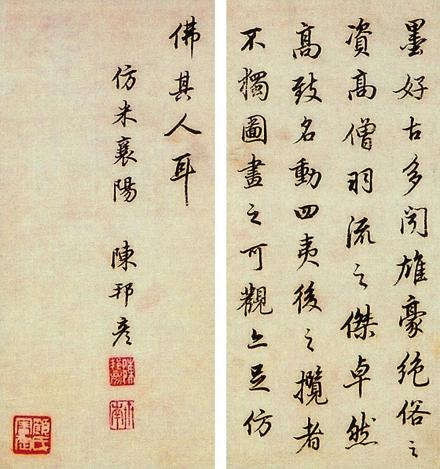 墨好古多闻雄豪绝俗之
資高僧羽流之傑卓然
高致名動四夷後之攬者
不獨圖畫之可觀亦足仿
佛其人耳
仿米襄陽 陳邦彦